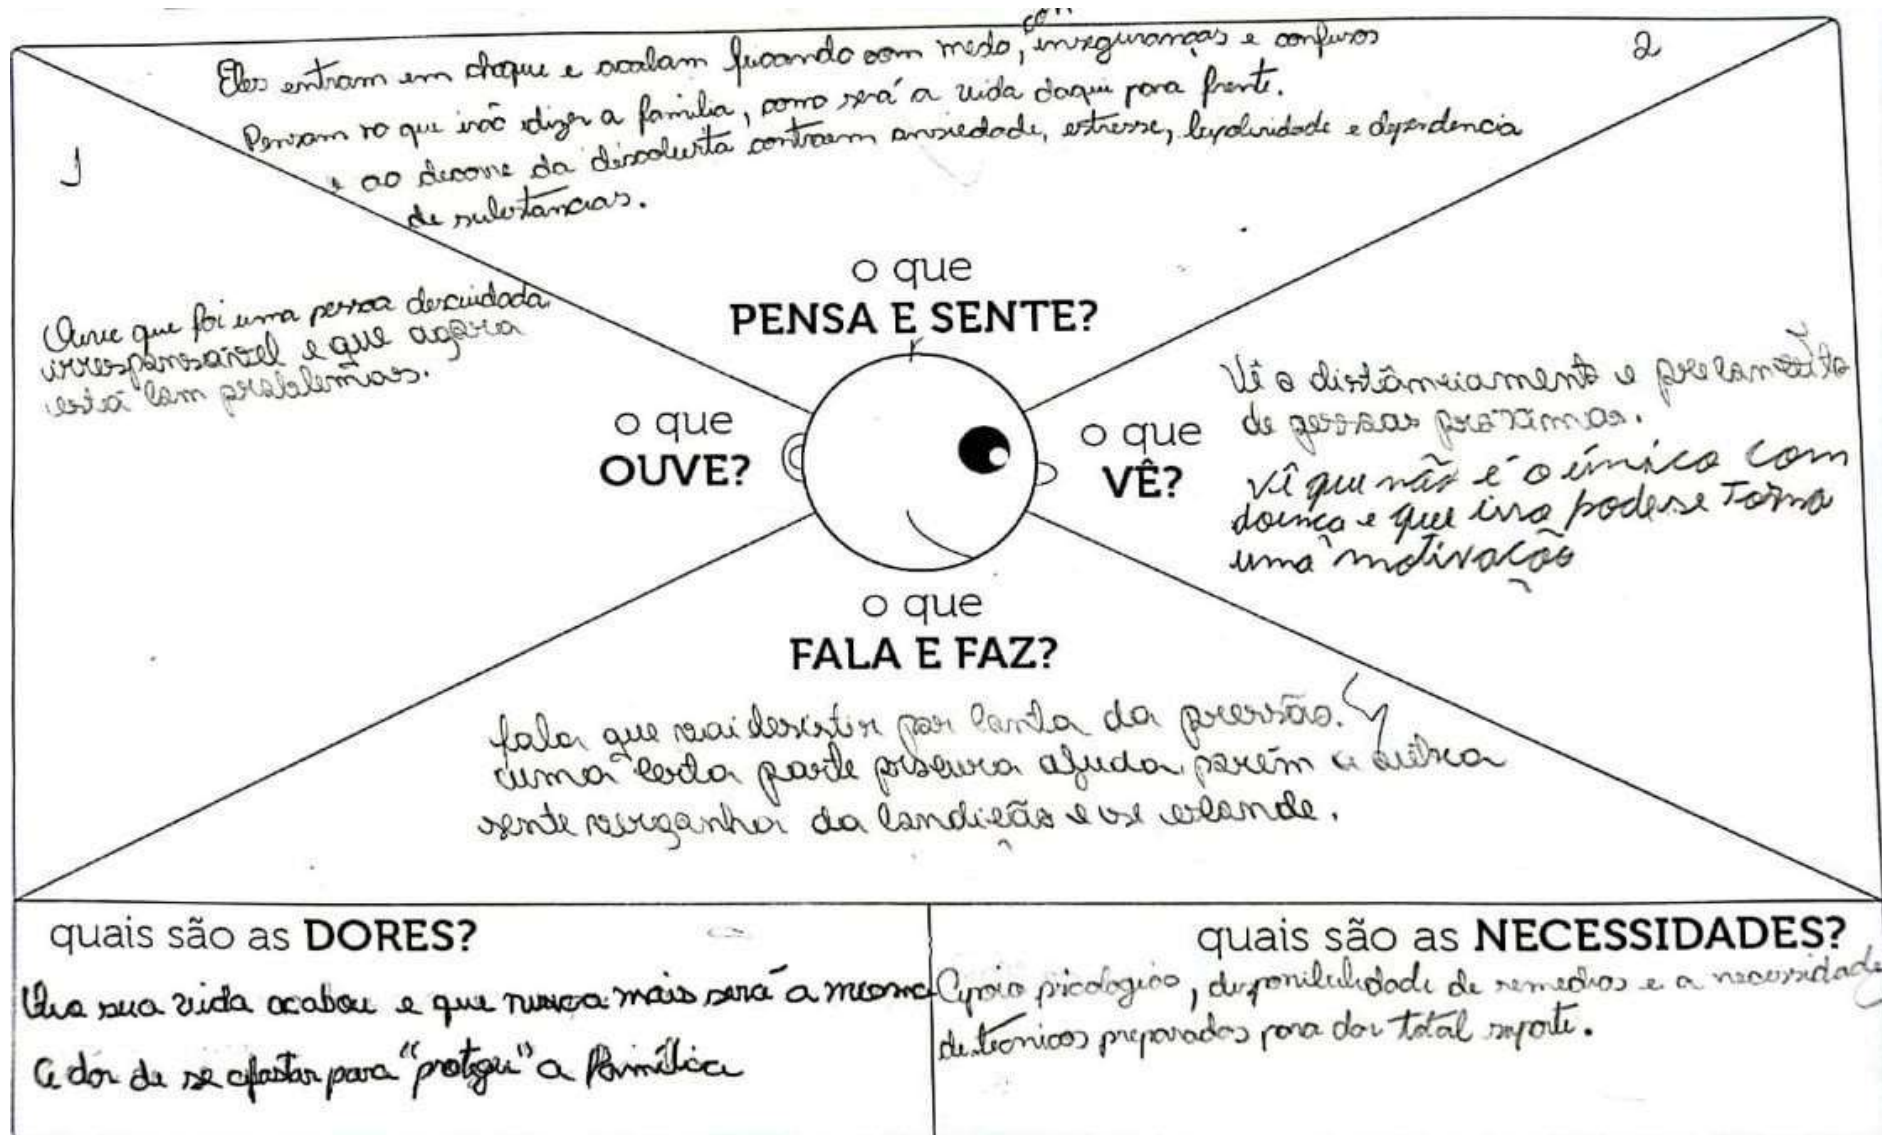 com
Eles entram em choque e acabam ficando com medo, inseguranças e confusos
2
Pensam no que irão dizer a família, como será a vida daqui para frente.
e ao decorre da descoberta contraem ansiedade, estresse, bipolaridade e dependencia
de substâncias.
1
o que
PENSA E SENTE?
Ouve que foi uma pessoa descuidada,
irresponsável e que agora
está com problemas.
o que
OUVE?
o que
VÊ?
Vê o distânciamento e preconceito
de pessoas proximas.
vê que não é o único com
doença e que isso pode se torna
uma motivação
o que
FALA E FAZ?
fala que vai desistir por conta da pressão.
uma certa parte procura ajuda, porém a outra
sente vergonha da condição e se esconde.
quais são as DORES?
Que sua vida acabou e que nunca mais será a mesma
A dor de se afastar para "protger" a família
quais são as NECESSIDADES?
Apoio picologico, disponibilidade de remedios e a necessidade
de técnicos preparados para dar total suporte.